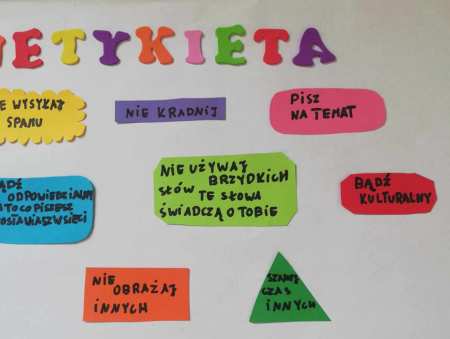 NETYKIETA
NIE WYSYŁAJ
SPAMU
NIE KRADNIJ
PISZ
NA TEMAT
BĄDŹ
ODPOWIEDZIALNY
ZA TO CO PISZESZ
W SIECI
NIE UŻYWAJ
BRZYDKICH
SŁÓW
TE SŁOWA
ŚWIADCZĄ O TOBIE
BĄDŹ
KULTURALNY
NIE
OBRAŻAJ
INNYCH
SZANUJ
CZAS
INNYCH